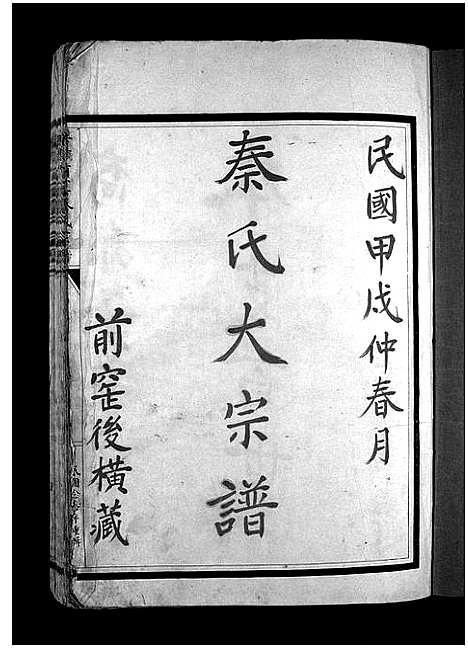 民國甲戌仲春月
秦氏大宗譜
前窑後橫藏